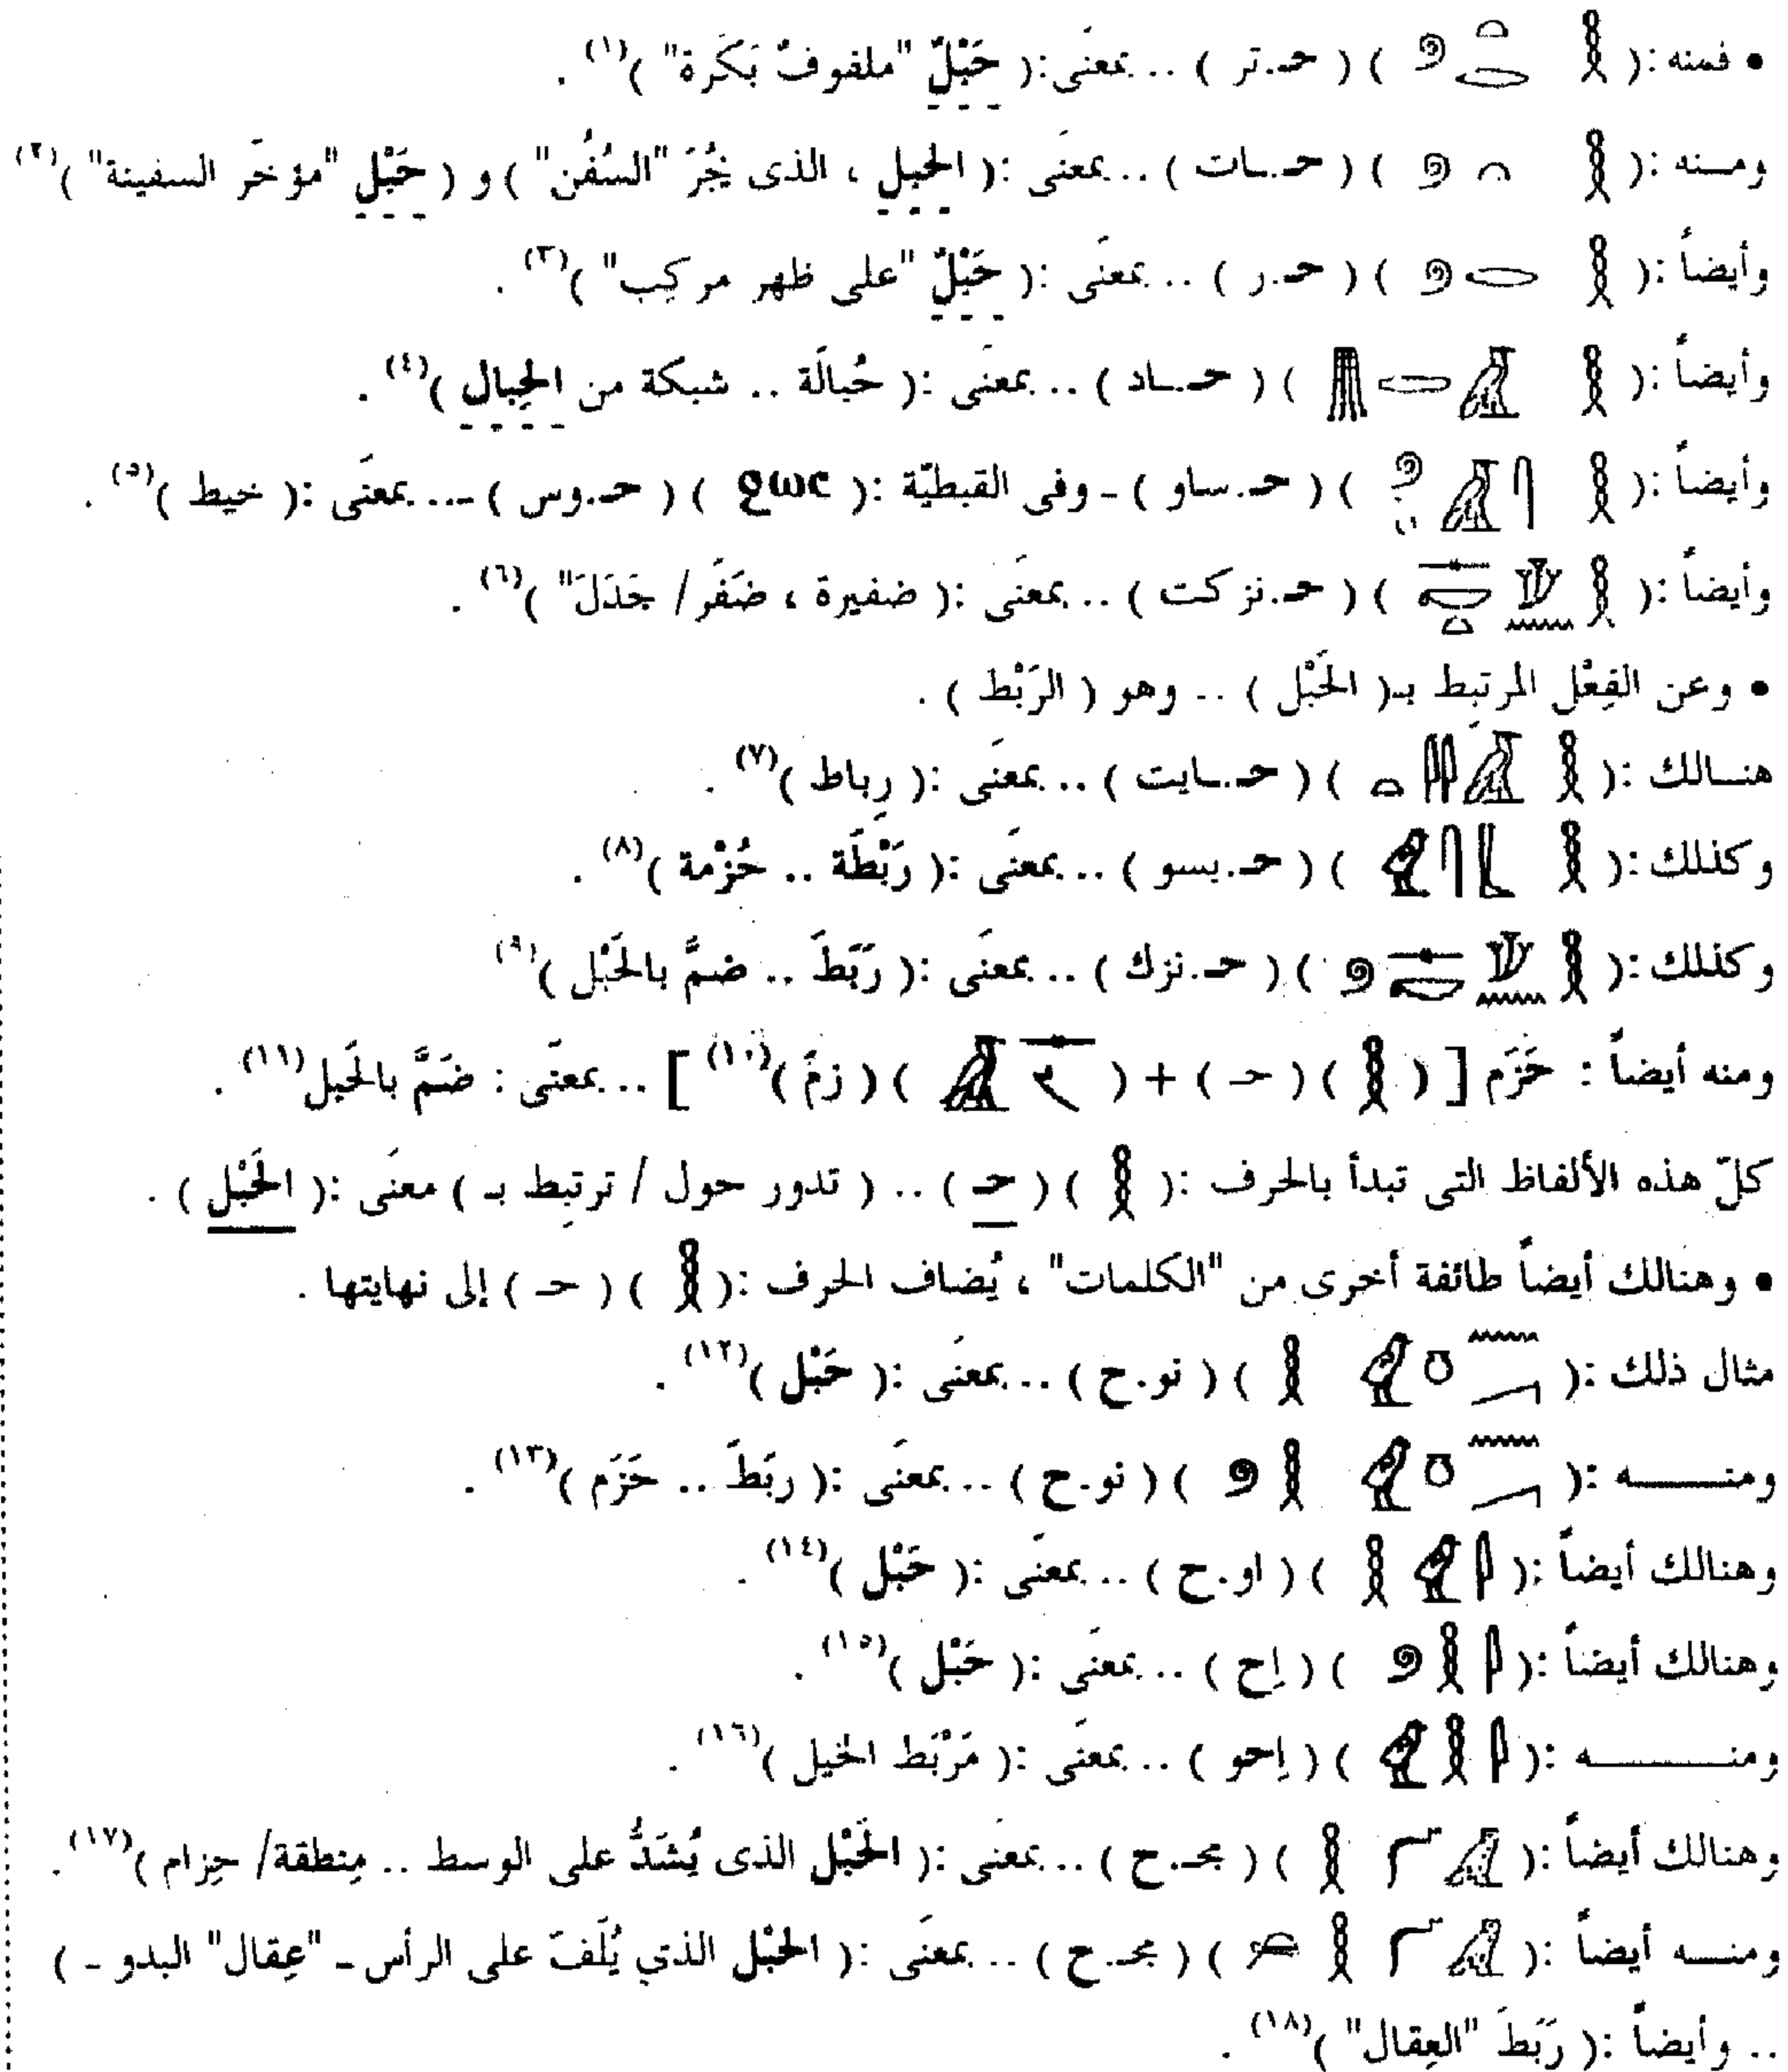 • فمنه :( 𓎛 𓏏𓂋 𓍢 ) ( حـ.تر ) .. بمعنَى :( حَبْلٌ "ملفوفٌ بَكَرة" )(١) .
ومـنه :( 𓎛 𓏏 𓍢 ) ( حـ.ـات ) .. بمعنَى :( الحَبل ، الذى يَجُرّ "السُفُن" ) و ( حَبْل "مؤخّر السفينة" )(٢)
وأيضاً :( 𓎛 𓂋 𓍢 ) ( حـ.ر ) .. بمعنَى :( حَبْلٌ "على ظهر مركِب" )(٣) .
وأيضاً :( 𓎛 𓄿 𓂧 ) ( حـ.ـاد ) .. بمعنَى :( حُبالَة .. شبكة من الحِبال )(٤) .
وأيضاً :( 𓎛 𓋴 𓄿 𓍢 ) ( حـ.ساو ) ـ وفى القبطيّة :( ϩωⲥ ) ( حـ.وس ) ــ.. بمعنَى :( خيط )(٥) .
وأيضاً :( 𓎛 𓇉 𓈖 𓊃 𓎡 𓏏 ) ( حـ.نزكت ) .. بمعنَى :( ضفيرة ، ضَفَر/ جَدَلَ" )(٦) .
• وعن الفِعْل المرتبِط بـ( الحَبْل ) .. وهو ( الرَبْط ) .
هنـالك :( 𓎛 𓄿 𓇌 𓏏 ) ( حـ.ـايت ) .. بمعنَى :( رِباط )(٧) .
وكذلك :( 𓎛 𓃀 𓋴 𓅱 ) ( حـ.بسو ) .. بمعنَى :( رَبْطَة .. حُزْمة )(٨) .
وكذلك :( 𓎛 𓇉 𓈖 𓊃 𓎡 𓍢 ) ( حـ.نزك ) .. بمعنَى :( رَبَطَ .. ضمَّ بالحَبْل )(٩)
ومنه أيضاً : حَزَم [ ( 𓎛 ) ( حـ ) + ( 𓊃 𓅓 ) ( زمَ )(١٠) ] .. بمعنَى : ضَمَّ بالحَبل(١١) .
كلّ هذه الألفاظ التى تبدأ بالحرف :( 𓎛 ) ( حـ ) .. ( تدور حول / ترتبِط بـ ) معنَى :( الحَبْل ) .
• وهنالك أيضاً طائفة أخرى من "الكلمات" ، يُضاف الحرف :( 𓎛 ) ( حـ ) إلى نهايتها .
مثال ذلك :( 𓈖 𓂝 𓏌 𓅱 𓎛 ) ( نو.ح ) .. بمعنَى :( حَبْل )(١٢) .
ومنـــه :( 𓈖 𓂝 𓏌 𓅱 𓎛 𓍢 ) ( نو.ح ) .. بمعنَى :( ربَطَ .. حَزَم )(١٣) .
وهنالك أيضاً :( 𓇋 𓅱 𓎛 ) ( او.ح ) .. بمعنَى :( حَبْل )(١٤) .
وهنالك أيضاً :( 𓇋 𓎛 𓍢 ) ( إح ) .. بمعنَى :( حَبْل )(١٥) .
ومنـــه :( 𓇋 𓎛 𓅱 ) ( إحو ) .. بمعنَى :( مَرْبَط الخيل )(١٦) .
وهنالك أيضاً :( 𓅓 𓎛 ) ( محـ.ح ) .. بمعنَى :( الحَبْل الذى يُشَدُّ على الوسط .. مِنطقة/ حِزام )(١٧) .
ومنـه أيضاً :( 𓅓 𓎛 ) ( محـ.ح ) .. بمعنَى :( الحَبْل الذي يُلَفّ على الرأس ـ "عِقال" البدو ـ )
.. وأيضاً :( رَبَطَ "العِقال" )(١٨) .